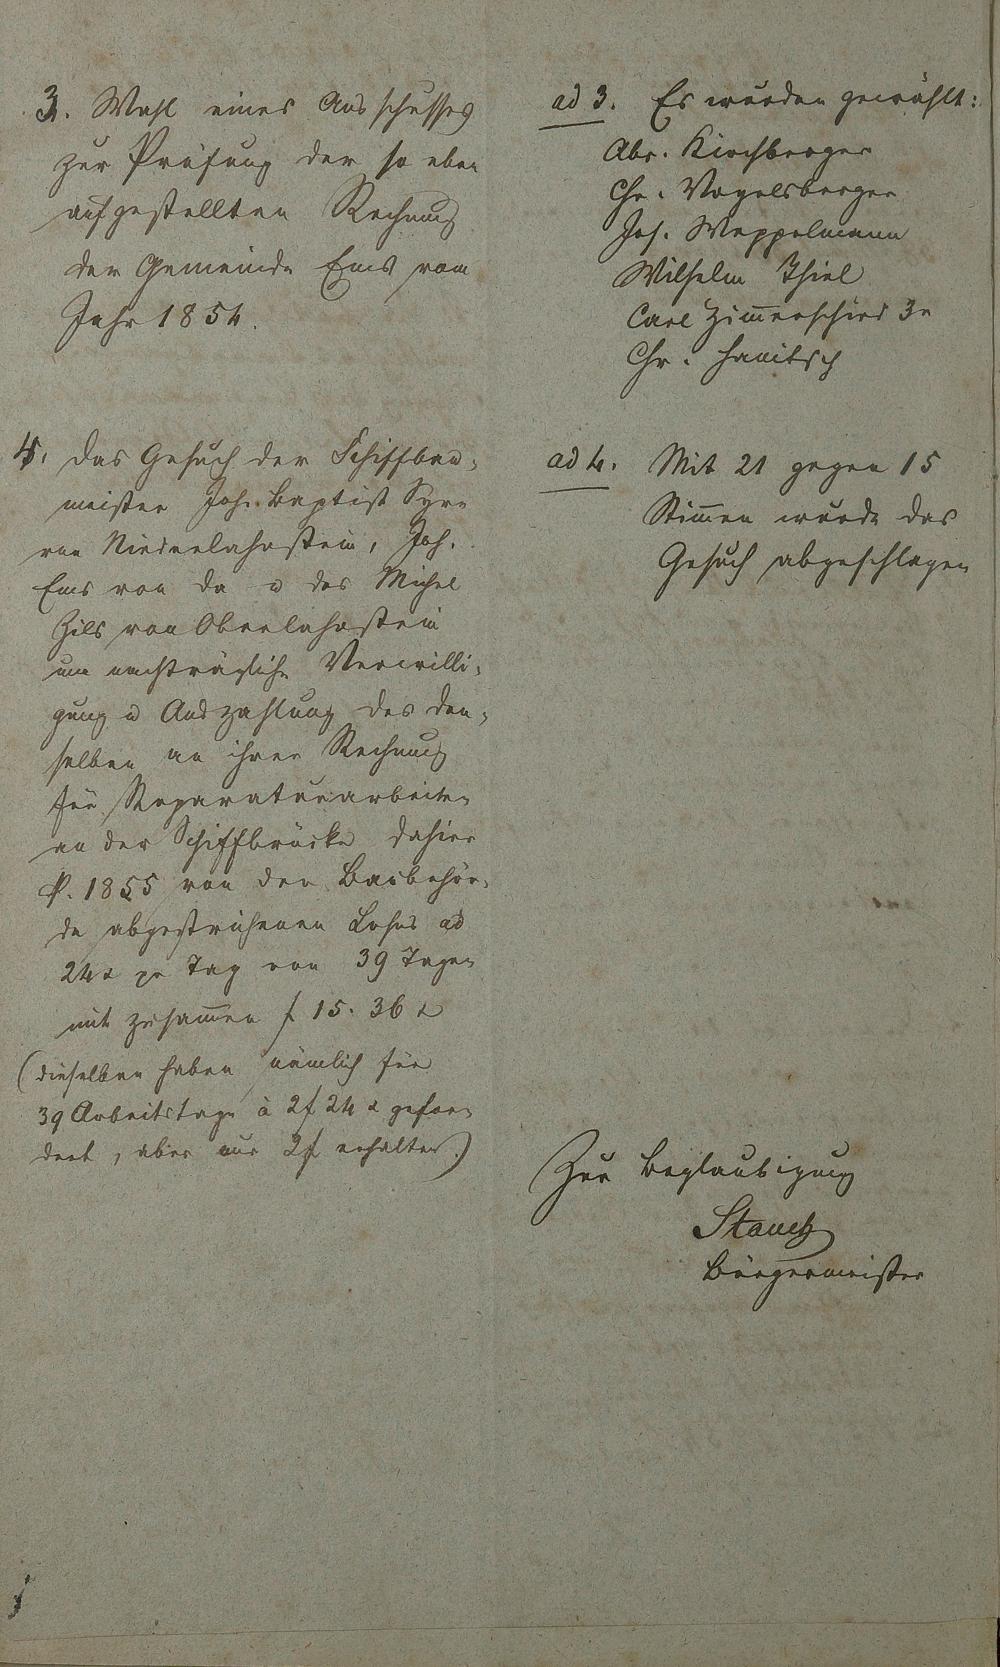 3. Wahl eines Ausschusses
zur Prüfung der so eben
aufgestellten Rechnung
der Gemeinde Ems vom
Jahr 1854.
ad 3. Es wurden gewählt:
Abr. Kirchberger
Chr. Vogelsberger
Jos. Weppelmann
Wilhelm Thiel
Carl Zim̅erschied 3r
Chr. Hanitsch
4. Das Gesuch der Schiffbau-
meister Joh. Baptist
von Niederlahnstein, Joh.
Ems von da u des Michel
Zils von Oberlahnstein
um nachträgliche Verwilli-
gung u Auszahlung des den-
selben an ihrer Rechnung
für Reparaturarbeiten
an der Schiffbrücke dahier
p. 1855 von der Baubehör-
de abgestrichenen Lohns ad
24 x pr Tag von 39 Tagen
mit zusam̅en f 15. 36 x
(dieselben haben nämlich für
39 Arbeitstage à 2f 24 x gefor-
dert, aber nur 2f erhalten.)
ad 4. Mit 21 gegen 15
Stim̅en wurde das
Gesuch abgeschlagen
Zur Beglaubigung
Bürgermeister